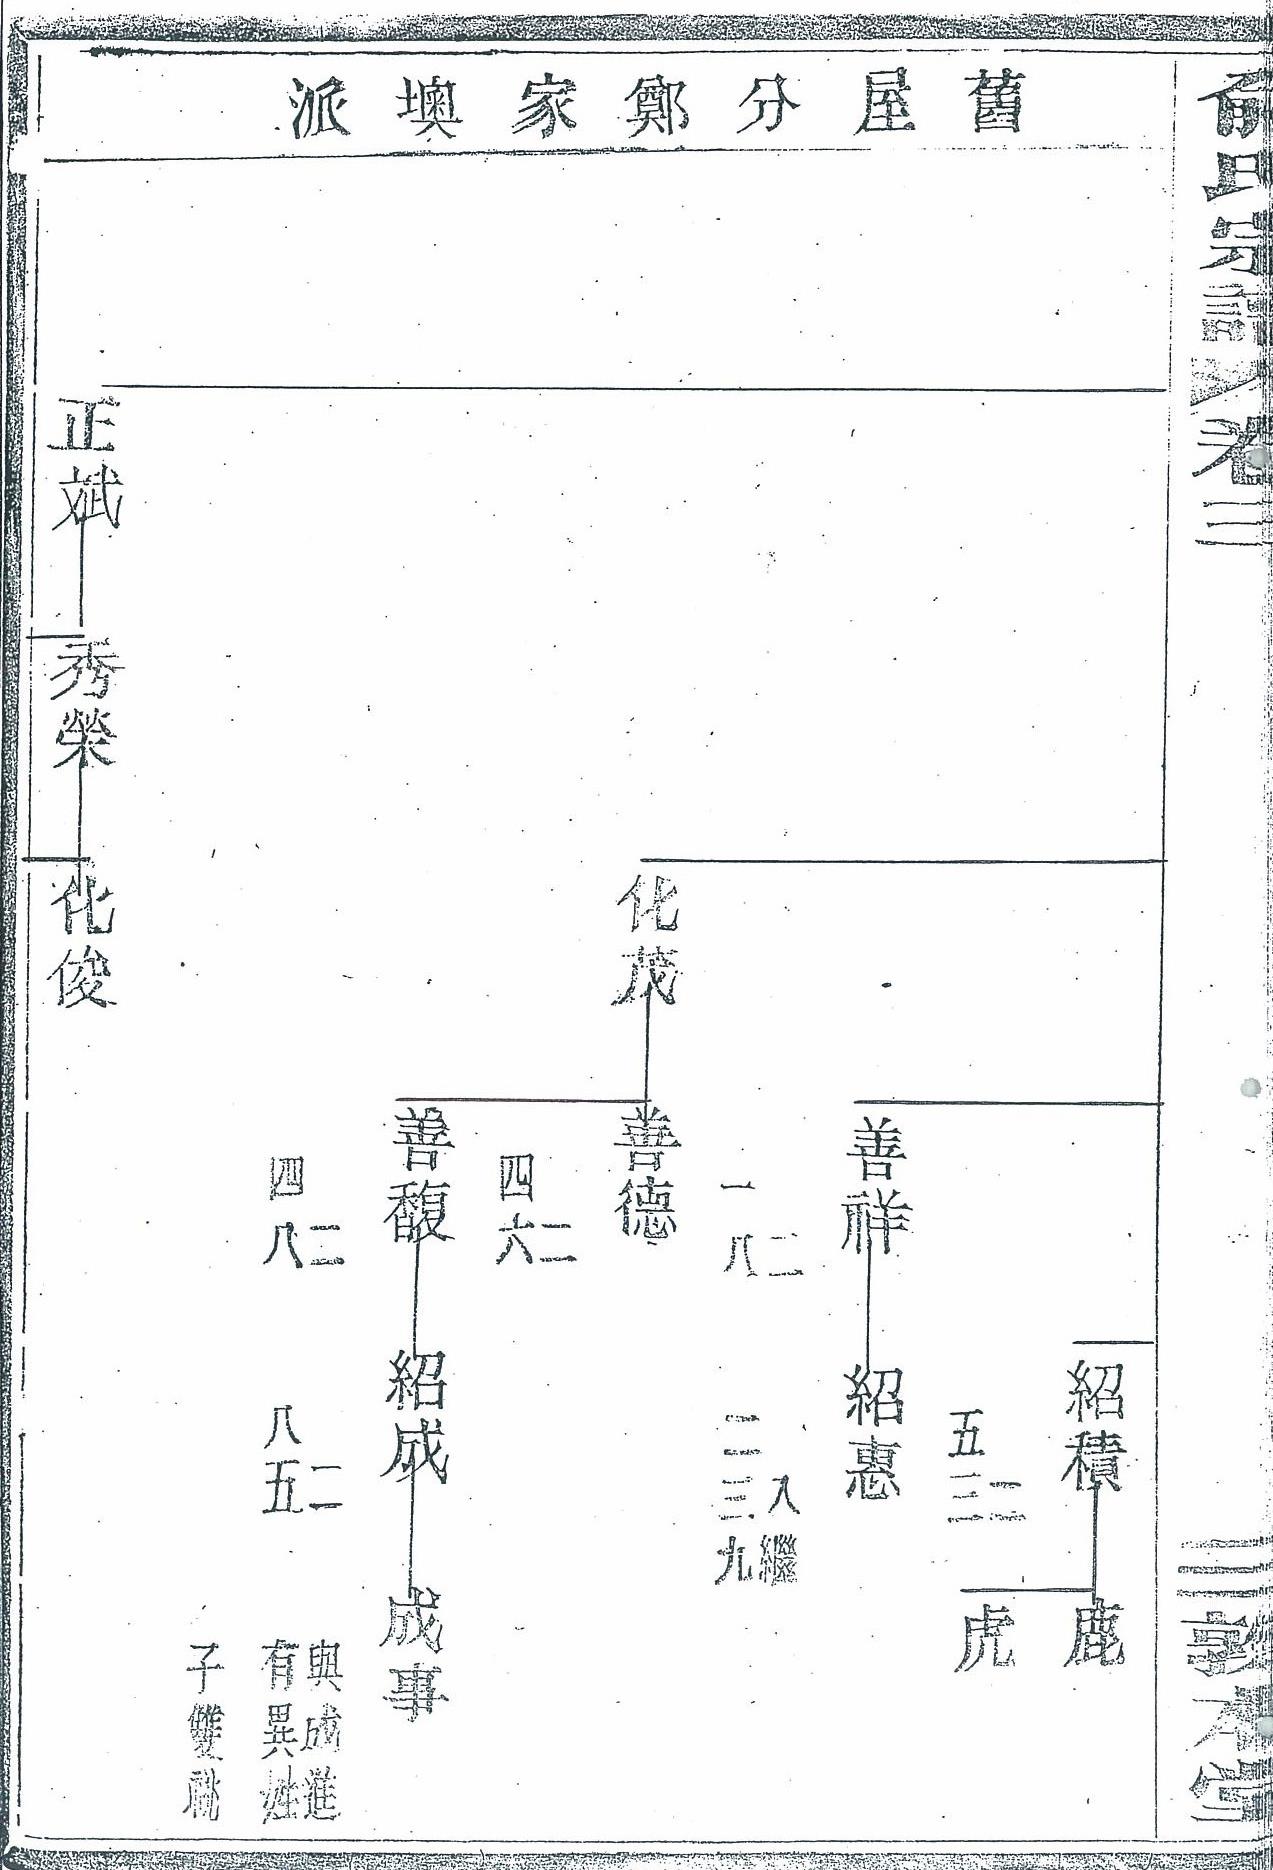 俞氏宗譜 卷三
三 敦本堂
舊屋分鄭家墺派
紹積
鹿
虎
二
五三
善祥
紹惠
二
一八
入繼
二三九
化茂
善德
二
四六
善馥
紹成
成事
二
四八
二
八五
與成進
有異姓
子雙祧
正斌
秀榮
化俊